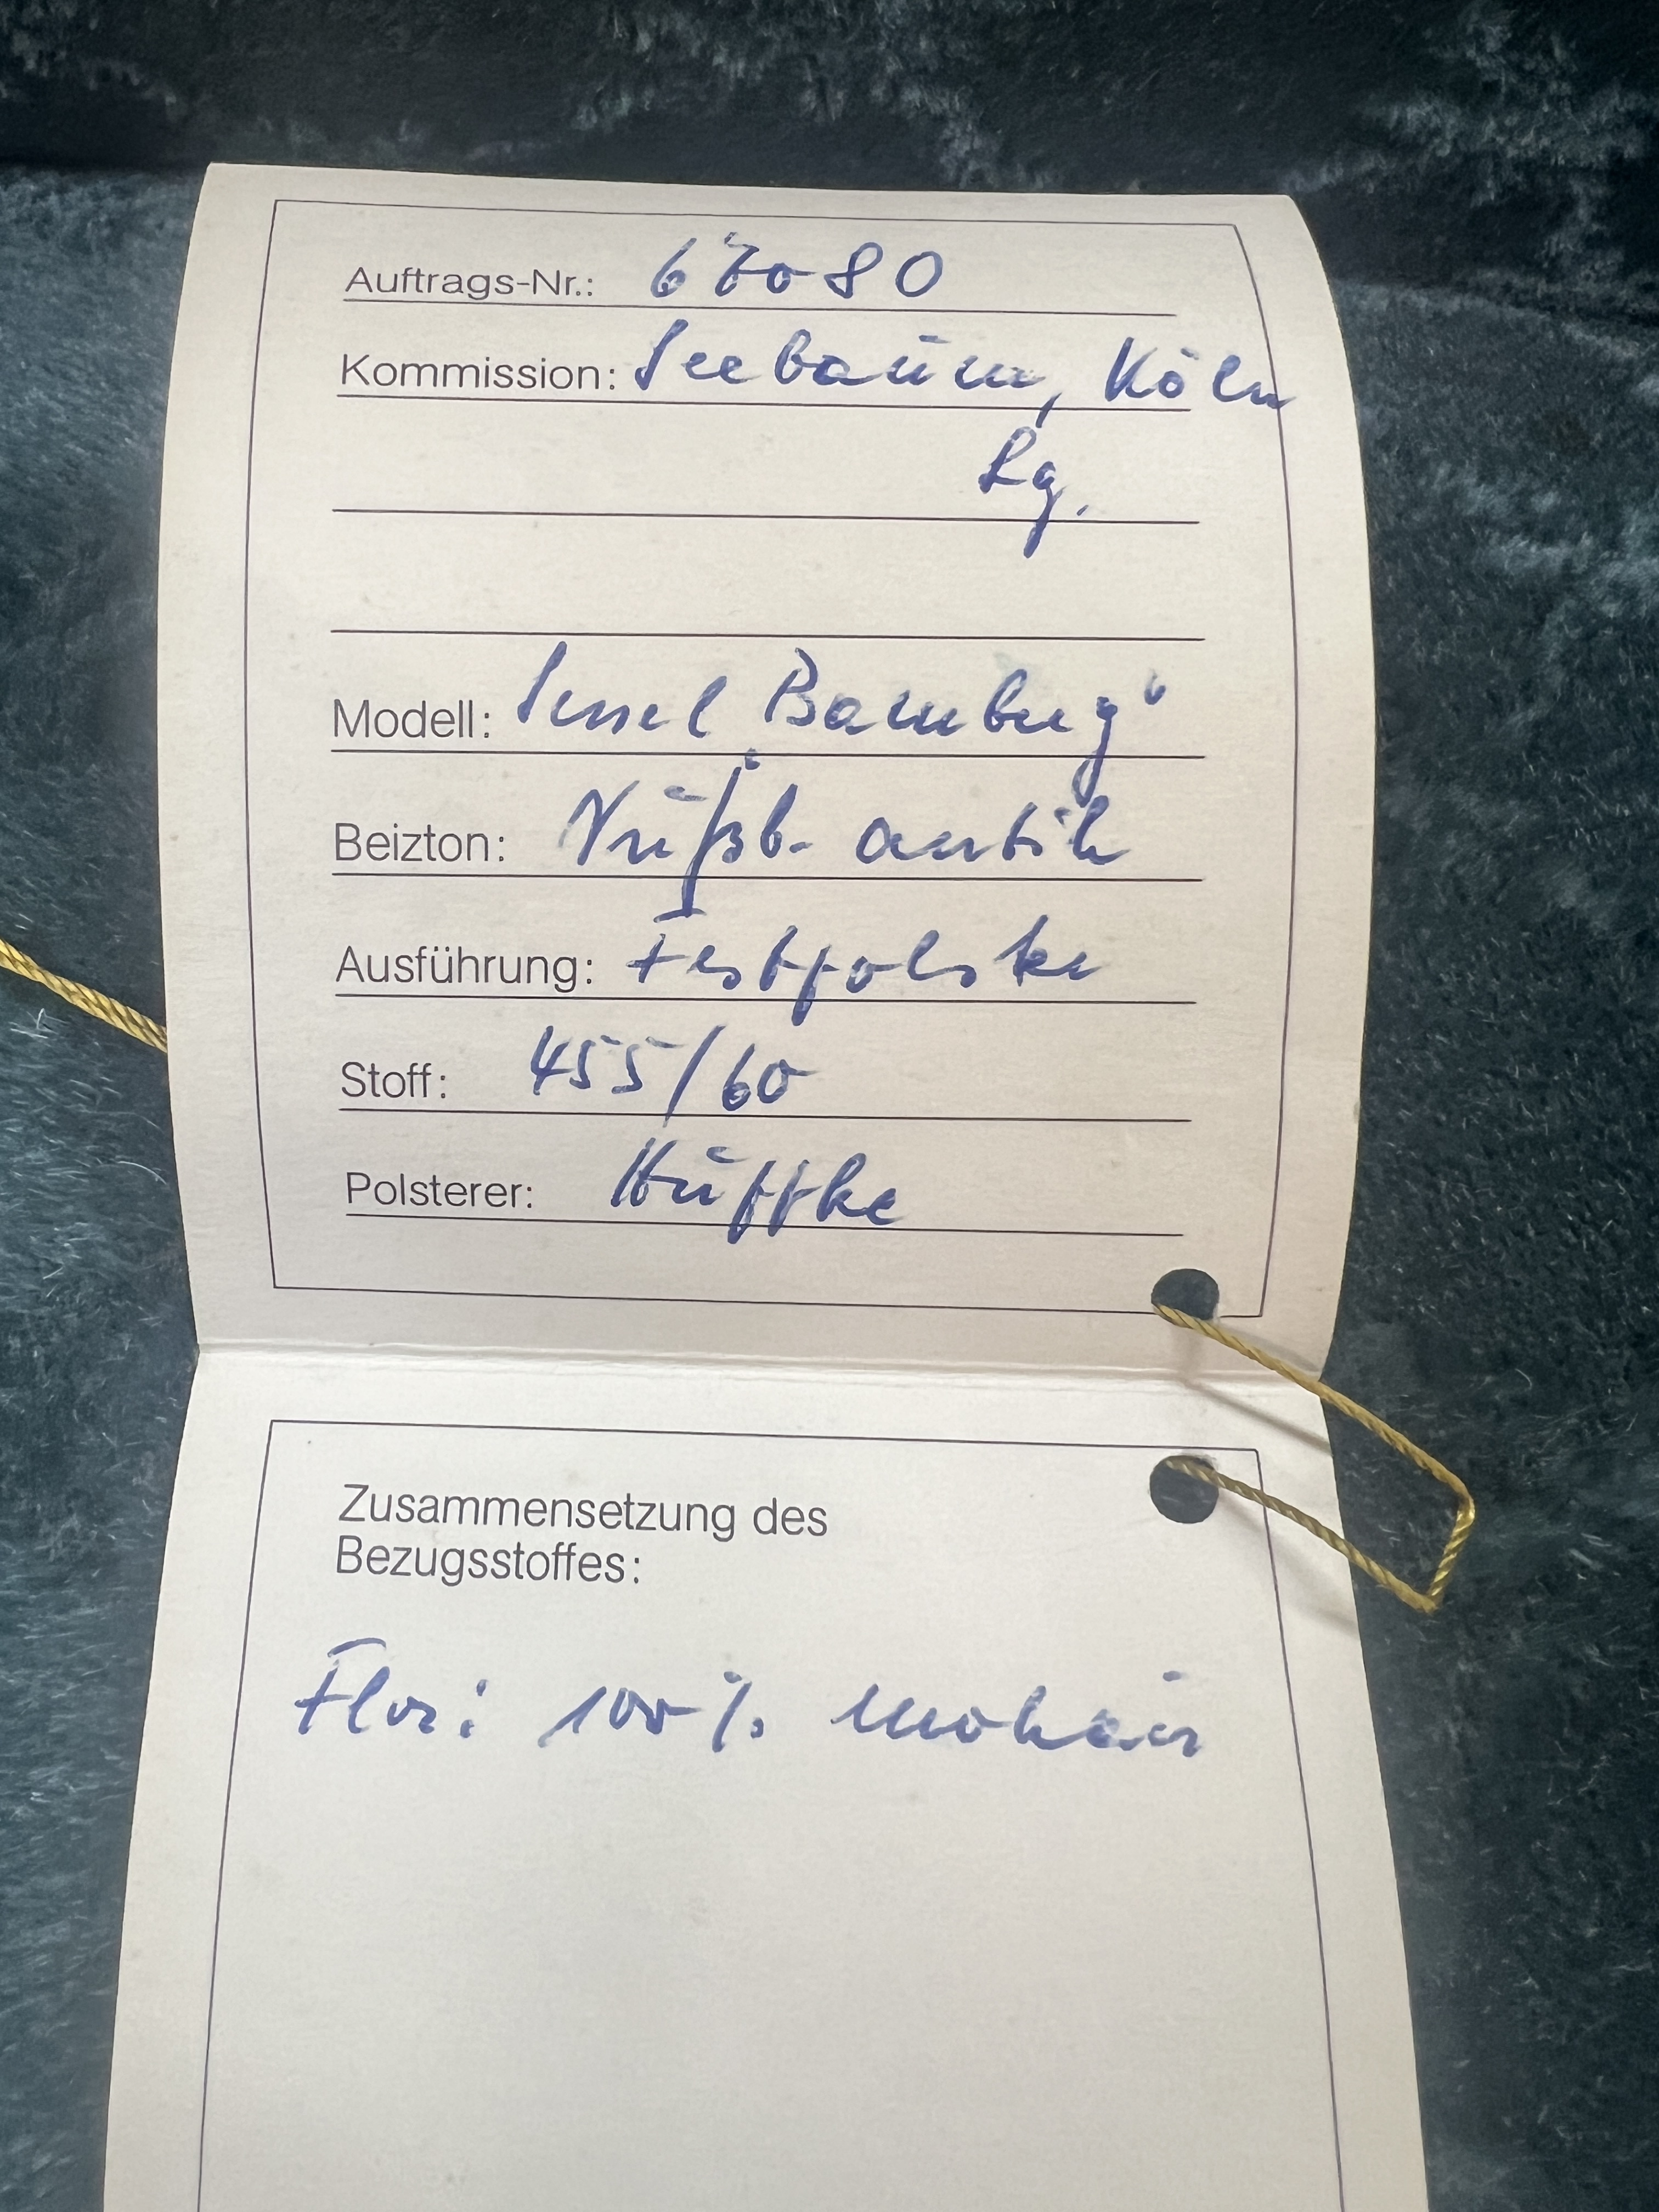 Auftrags-Nr.: 67080
Kommission: Seebaum, Köln
Lg.
Modell: Sessel "Bamberg"
Beizton: Nußb. antik
Ausführung: Festpolster
Stoff: 455/60
Polsterer:
Zusammensetzung des
Bezugsstoffes:
Flor: 100% Mohair